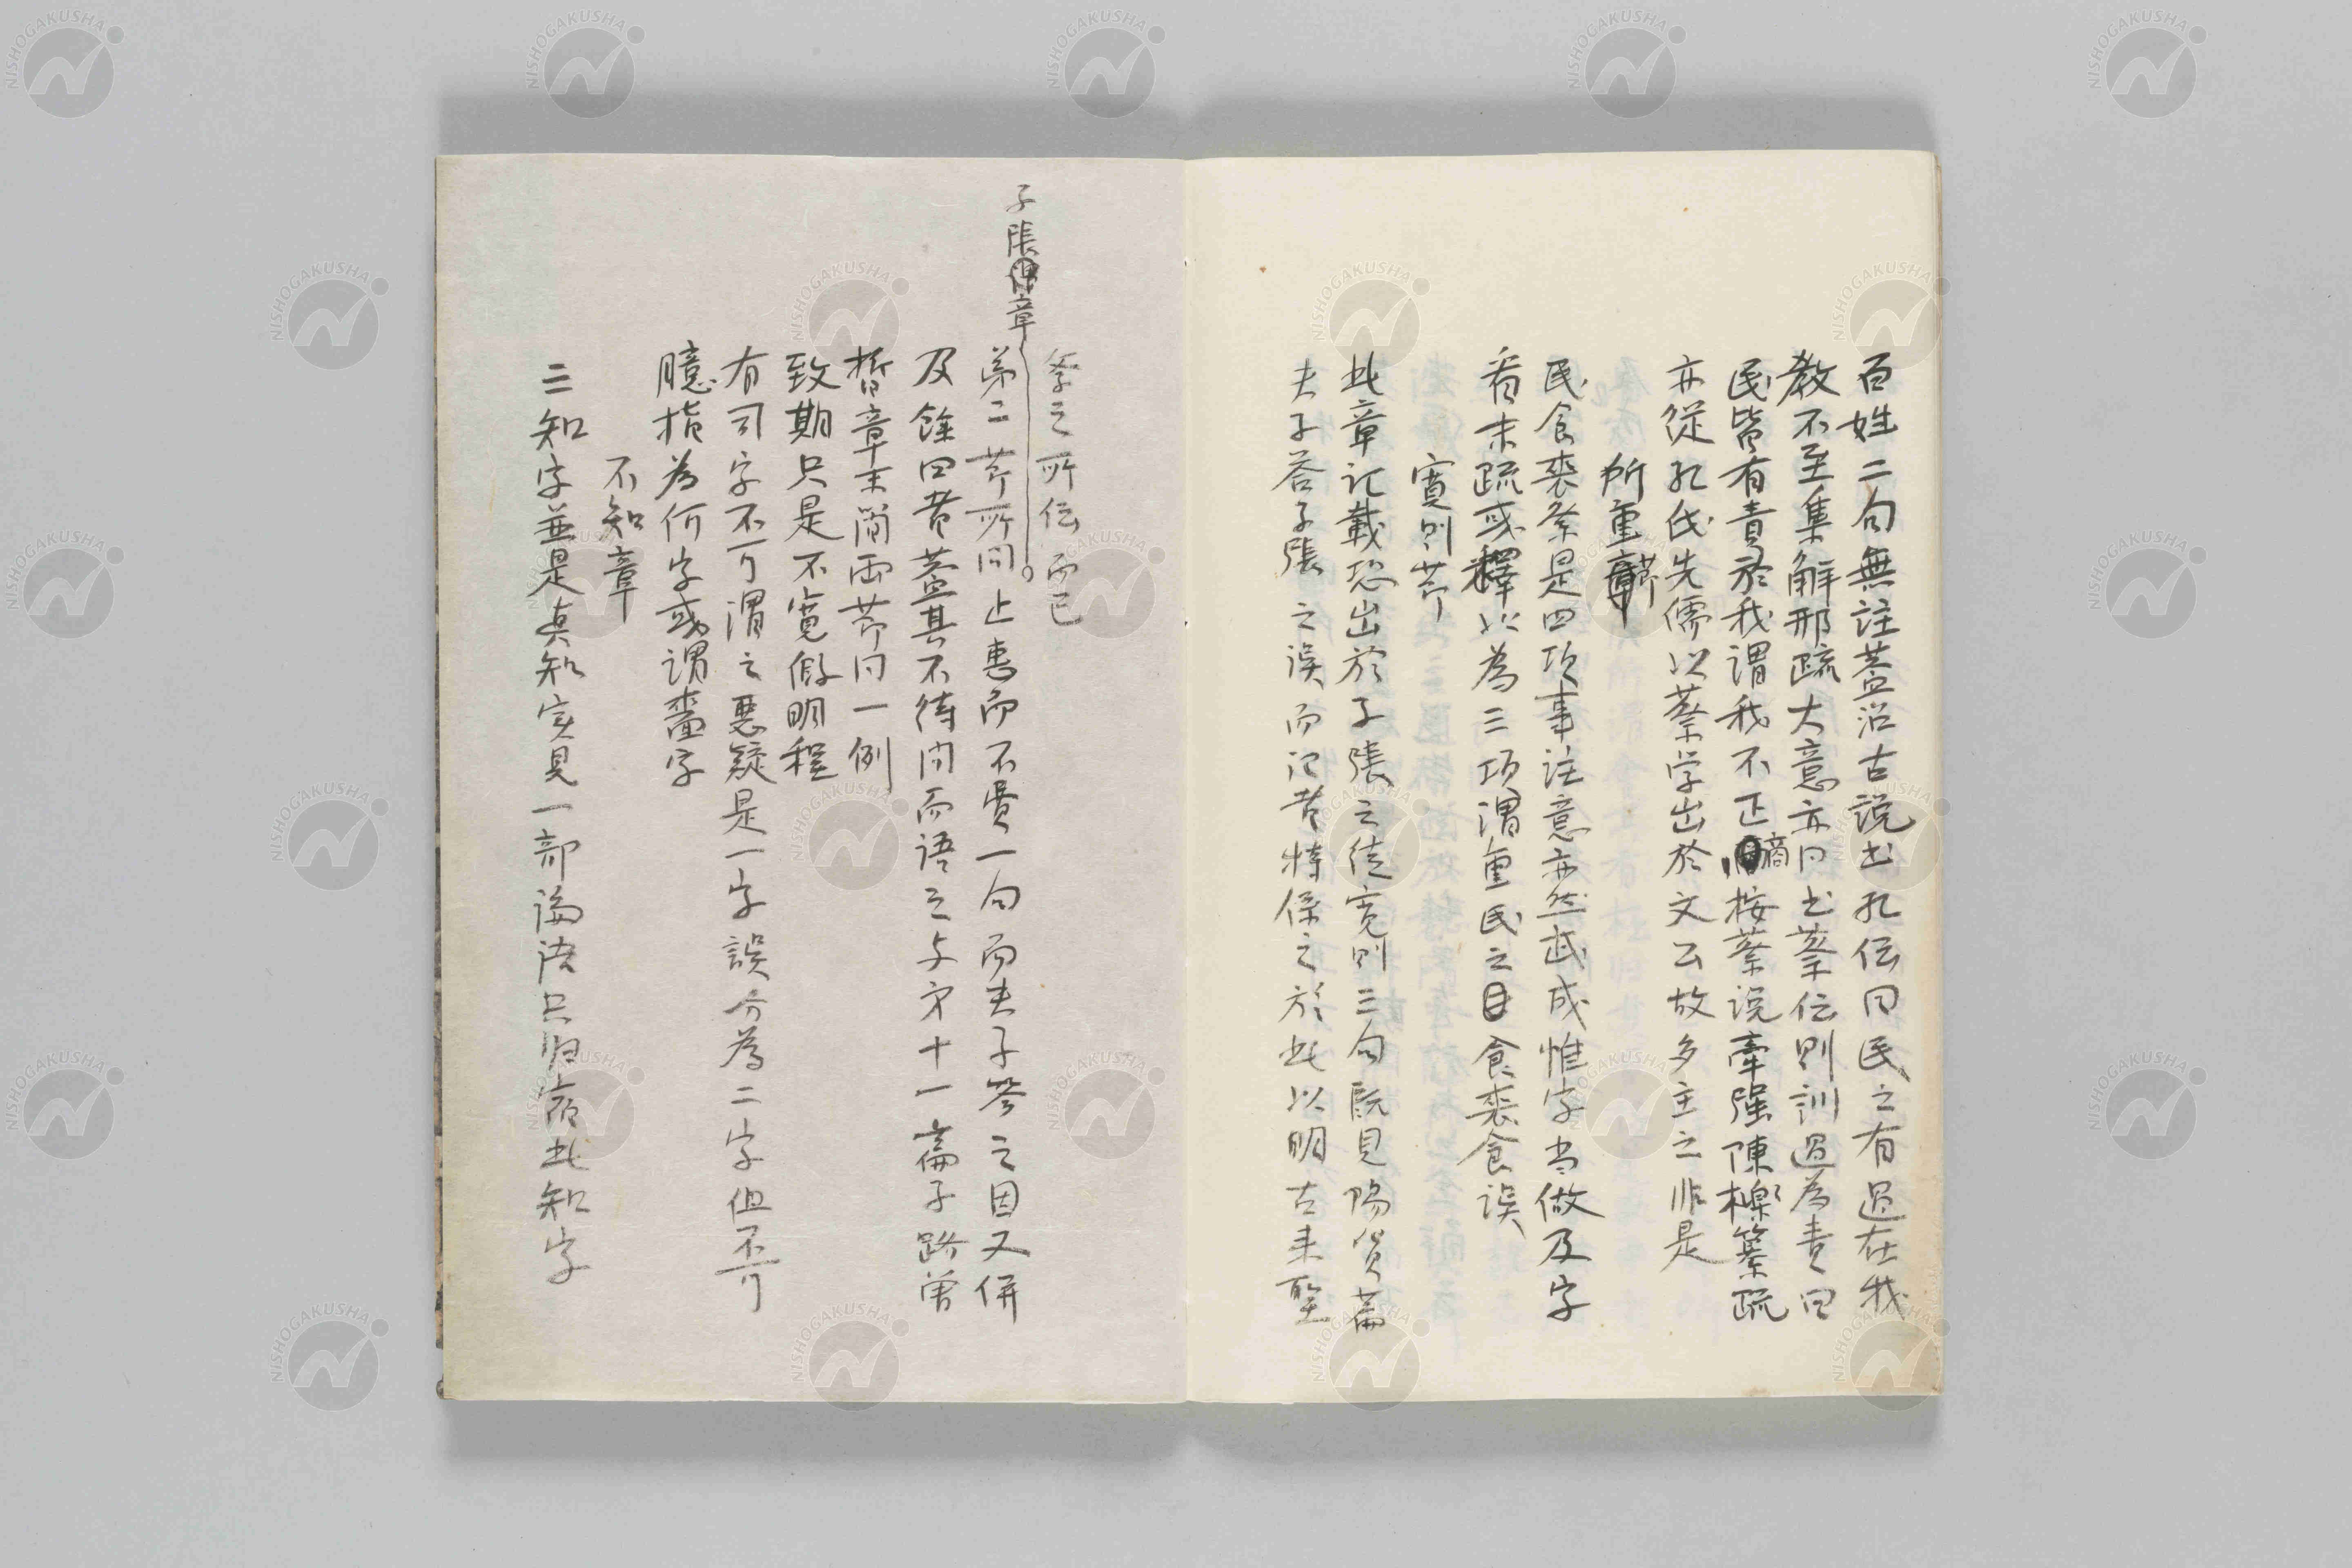 百姓二句無註蓋沿古説書孔伝曰民之有過在我
教不至集解邢疏大意亦同書蔡伝則訓過為責曰
民皆有責於我謂我不正商按蔡説牽强陳櫟纂疏
亦從孔氏先儒以蔡学出於文公故多主之非是
所重節
民食喪祭是四項事注意亦然武成惟字当做及字
看朱疏或釋以為三項謂重民之目食喪食誤
寛則節
此章記載恐出於子張之徒寛則三句既見陽貨篇
夫子荅子張之誤而記者特係之於此以明古来聖
學之所伝而已
子張章
第二節所問止惠而不費一句而夫子答之因又併
及餘四者蓋其不待問而語之与第十一篇子路曽
晳章末簡両節同一例
致期只是不寛假明程
有司字不可謂之悪疑是一字誤分為二字但不可
臆指為何字或謂嗇字
不知章
二知字並是真知实見一部論語只归宿此知字
NISHOGAKUSHA